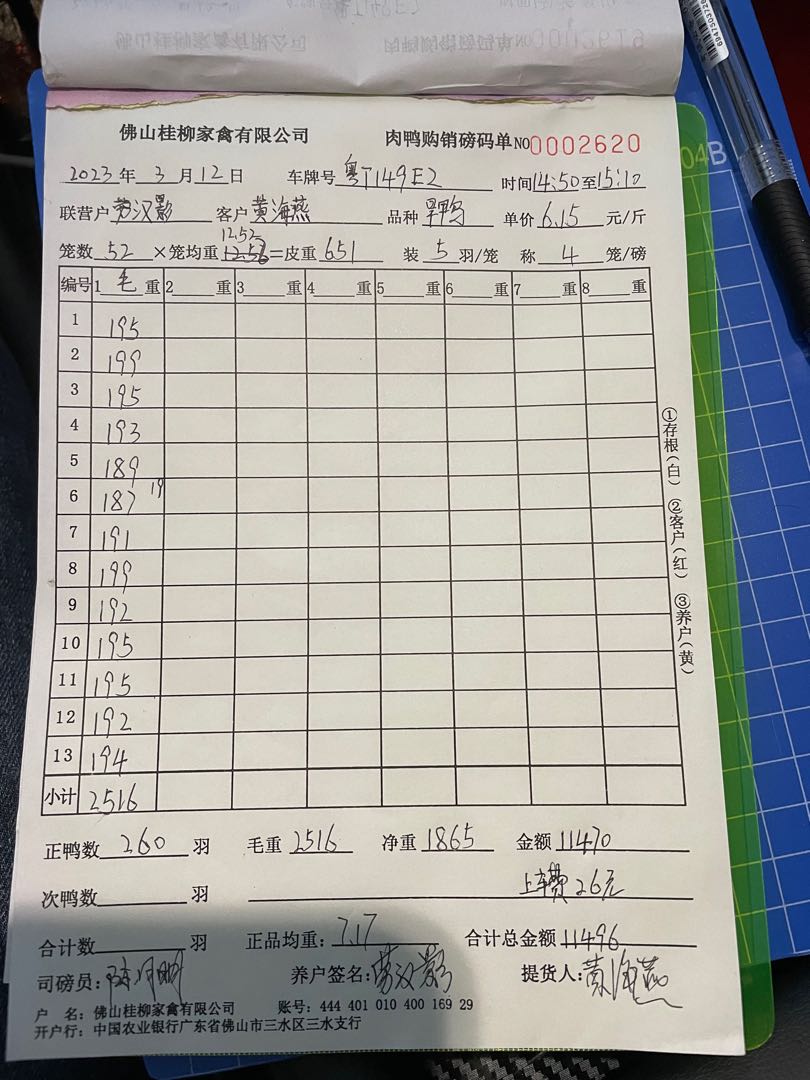 佛山桂柳家禽有限公司 肉鸭购销磅码单 NO 0002620
2023年3月12日 车牌号 粤T149E2 时间14:50至15:10
联营户 劳汉影 客户 黄海燕 品种 单价 6.15 元/斤
12.52
笼数 52 ×笼均重 12.56 =皮重 651 装 5 羽/笼 称 4 笼/磅
编号 1 毛 重 2 重 3 重 4 重 5 重 6 重 7 重 8 重
1 195
2 199
3 195
4 193
5 189
6 187 19
7 191
8 199
9 192
10 195
11 195
12 192
13 194
小计 2516
①存根(白) ②客户(红) ③养户(黄)
正鸭数 260 羽 毛重 2516 净重 1865 金额 11470
次鸭数 羽 上车费26元
合计数 羽 正品均重: 7.17 合计总金额 11496
司磅员: 养户签名: 劳汉影 提货人: 黄海燕
户 名: 佛山桂柳家禽有限公司 账号: 444 401 010 400 169 29
开户行: 中国农业银行广东省佛山市三水区三水支行
04B